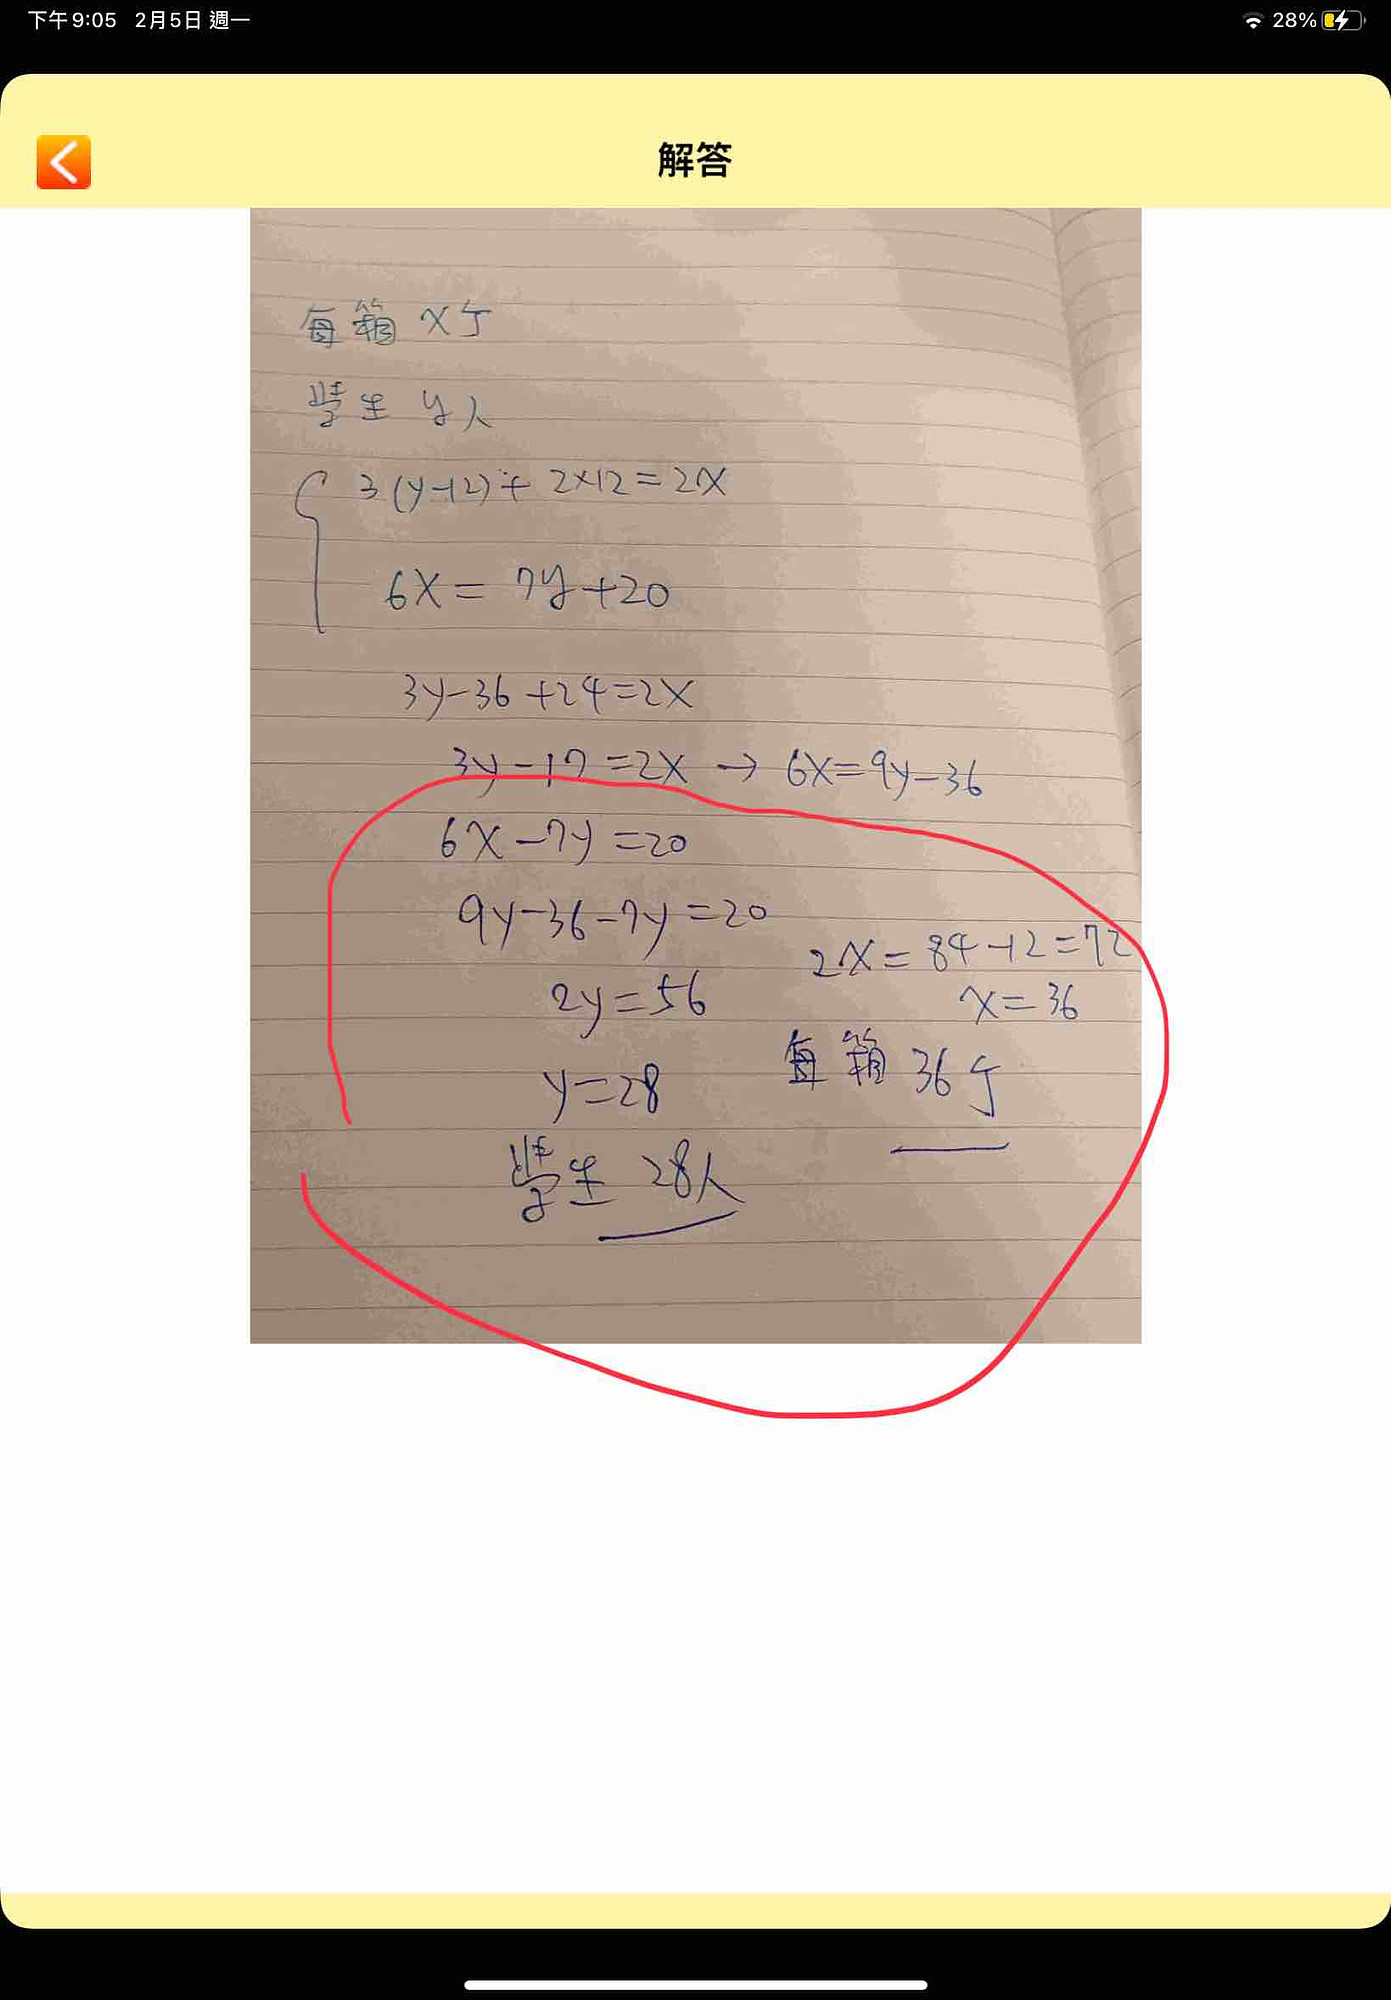 下午9:05 2月5日 週一
28%
解答
每箱 x个
學生 y人
3(y-12)+ 2×12=2x
6x= 7y+20
3y-36+24=2x
3y-12=2x → 6x=9y-36
6x-7y=20
9y-36-7y=20
2y=56
y=28
學生 28人
2x=84-12=72
x=36
每箱 36个